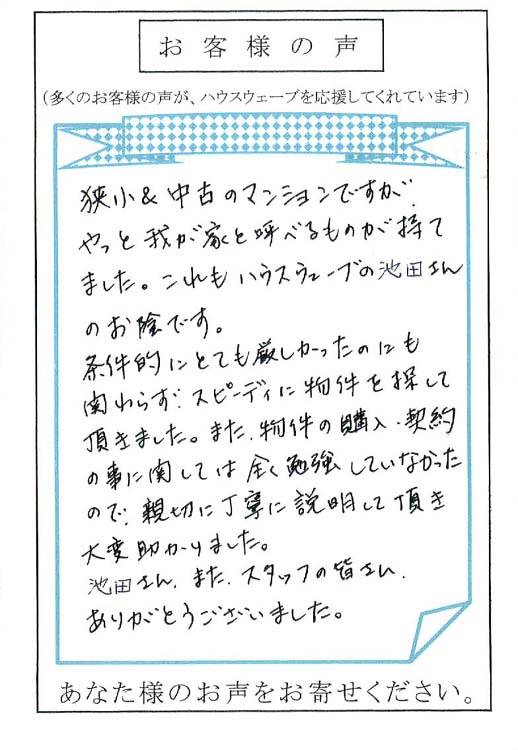 お客様の声
（多くのお客様の声が、ハウスウェーブを応援してくれています）
狭小&中古のマンションですが、
やっと我が家と呼べるものが持て
ました。これもハウスウェーブの池田さん
のお陰です。
条件的にとても厳しかったのにも
関わらず、スピーディに物件を探して
頂きました。また、物件の購入・契約
の事に関しては全く勉強していなかった
ので、親切に丁寧に説明して頂き
大変助かりました。
池田さん、また、スタッフの皆さん、
ありがとうございました。
あなた様のお声をお寄せください。